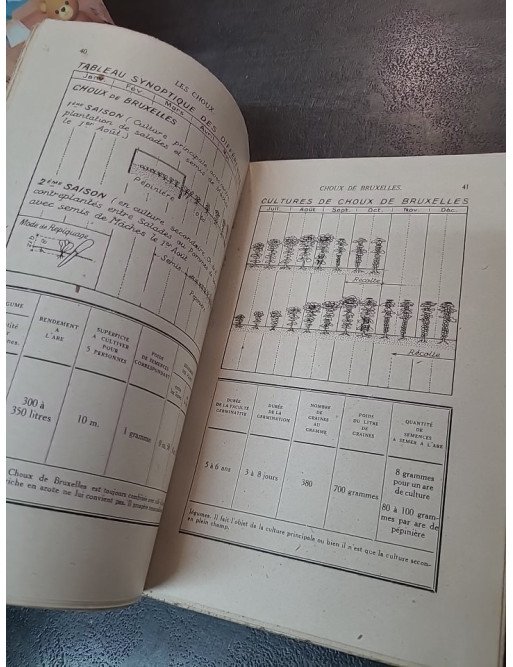 40
LES CHOUX
TABLEAU SYNOPTIQUE DES
Janv. Fév. Mars
CHOUX DE BRUXELLES
1ère SAISON (Culture principale
plantation de salades et semis de
le 1er Août.)
Pépinière
2ème SAISON (en culture secondaire
contreplantés entre Salades ou Pommes
avec semis de Mâches le 1er Août
Mode de Repiquage
Semis
RENDEMENT
A
L'ARE
SUPERFICIE
A CULTIVER
POUR
5 PERSONNES
POIDS
DE SEMENCES
CORRESPONDANT
300 à
350 litres
10 m.
1 gramme
Choux de Bruxelles est toujours
riche en azote ne lui convient pas. Il
CHOUX DE BRUXELLES.
41
CULTURES DE CHOUX DE BRUXELLES
Juil. Août Sept. Oct. Nov. Déc.
Récolte
Récolte
DURÉE
DE LA FACULTÉ
GERMINATIVE
DURÉE
DE LA
GERMINATION
NOMBRE
DE
GRAINES
AU
GRAMME
POIDS
DU LITRE
DE
GRAINES
QUANTITÉ
DE
SEMENCES
A SEMER A L'ARE
5 à 6 ans
3 à 8 jours
380
700 grammes
8 grammes
pour un are
de culture
80 à 100 gram-
mes par are de
pépinière
légumes. Il fait l'objet de la culture principale ou bien il n'est que la culture secon-
en plein champ.